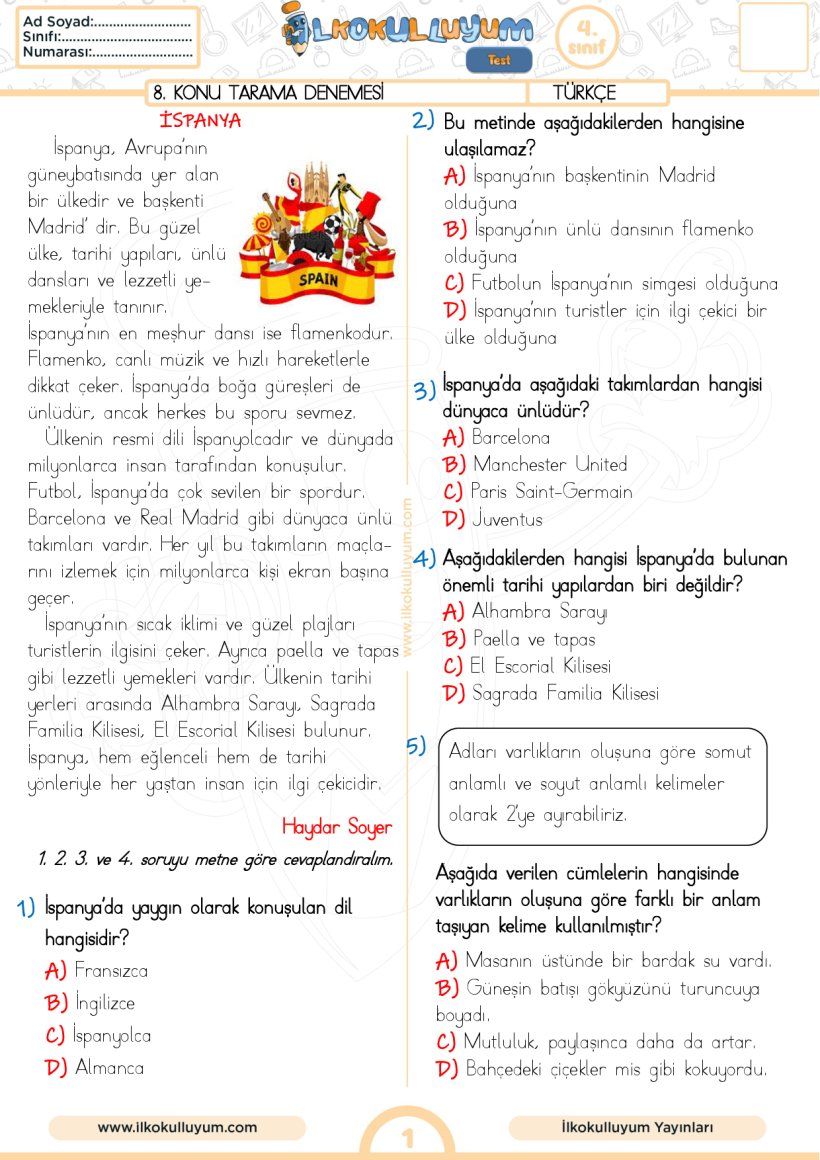 Ad Soyad:..........................
Sınıfı:...................................
Numarası:...........................
İLKOKULLUYUM
Test
4.
sınıf
8. KONU TARAMA DENEMESİ
TÜRKÇE
İSPANYA
İspanya, Avrupa'nın
güneybatısında yer alan
bir ülkedir ve başkenti
Madrid' dir. Bu güzel
ülke, tarihi yapıları, ünlü
dansları ve lezzetli ye-
mekleriyle tanınır.
SPAIN
İspanya'nın en meşhur dansı ise flamenkodur.
Flamenko, canlı müzik ve hızlı hareketlerle
dikkat çeker. İspanya'da boğa güreşleri de
ünlüdür, ancak herkes bu sporu sevmez.
Ülkenin resmi dili İspanyolcadır ve dünyada
milyonlarca insan tarafından konuşulur.
Futbol, İspanya'da çok sevilen bir spordur.
Barcelona ve Real Madrid gibi dünyaca ünlü
takımları vardır. Her yıl bu takımların maçla-
rını izlemek için milyonlarca kişi ekran başına
geçer.
İspanya'nın sıcak iklimi ve güzel plajları
turistlerin ilgisini çeker. Ayrıca paella ve tapas
gibi lezzetli yemekleri vardır. Ülkenin tarihi
yerleri arasında Alhambra Sarayı, Sagrada
Familia Kilisesi, El Escorial Kilisesi bulunur.
İspanya, hem eğlenceli hem de tarihi
yönleriyle her yaştan insan için ilgi çekicidir.
Haydar Soyer
1. 2. 3. ve 4. soruyu metne göre cevaplandıralım.
1) İspanya'da yaygın olarak konuşulan dil
hangisidir?
A) Fransızca
B) İngilizce
C) İspanyolca
D) Almanca
2) Bu metinde aşağıdakilerden hangisine
ulaşılamaz?
A) İspanya'nın başkentinin Madrid
olduğuna
B) İspanya'nın ünlü dansının flamenko
olduğuna
C) Futbolun İspanya'nın simgesi olduğuna
D) İspanya'nın turistler için ilgi çekici bir
ülke olduğuna
3) İspanya'da aşağıdaki takımlardan hangisi
dünyaca ünlüdür?
A) Barcelona
B) Manchester United
C) Paris Saint-Germain
D) Juventus
4) Aşağıdakilerden hangisi İspanya'da bulunan
önemli tarihi yapılardan biri değildir?
A) Alhambra Sarayı
B) Paella ve tapas
C) El Escorial Kilisesi
D) Sagrada Familia Kilisesi
5) Adları varlıkların oluşuna göre somut
anlamlı ve soyut anlamlı kelimeler
olarak 2'ye ayırabiliriz.
Aşağıda verilen cümlelerin hangisinde
varlıkların oluşuna göre farklı bir anlam
taşıyan kelime kullanılmıştır?
A) Masanın üstünde bir bardak su vardı.
B) Güneşin batışı gökyüzünü turuncuya
boyadı.
C) Mutluluk, paylaşınca daha da artar.
D) Bahçedeki çiçekler mis gibi kokuyordu.
www.ilkokulluyum.com
www.ilkokulluyum.com
1
İlkokulluyum Yayınları